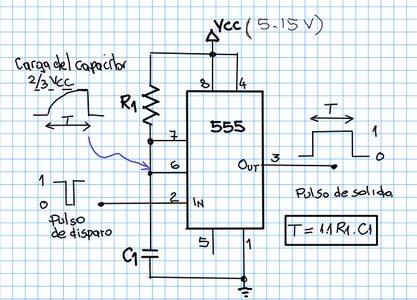 Vcc (5-15V)
Carga del capacitor
2/3 Vcc
T
R1
8
4
555
7
6
2
IN
OUT
3
5
1
C1
T
1
0
Pulso de salida
T = 1.1 R1. C1
1
0
Pulso
de disparo